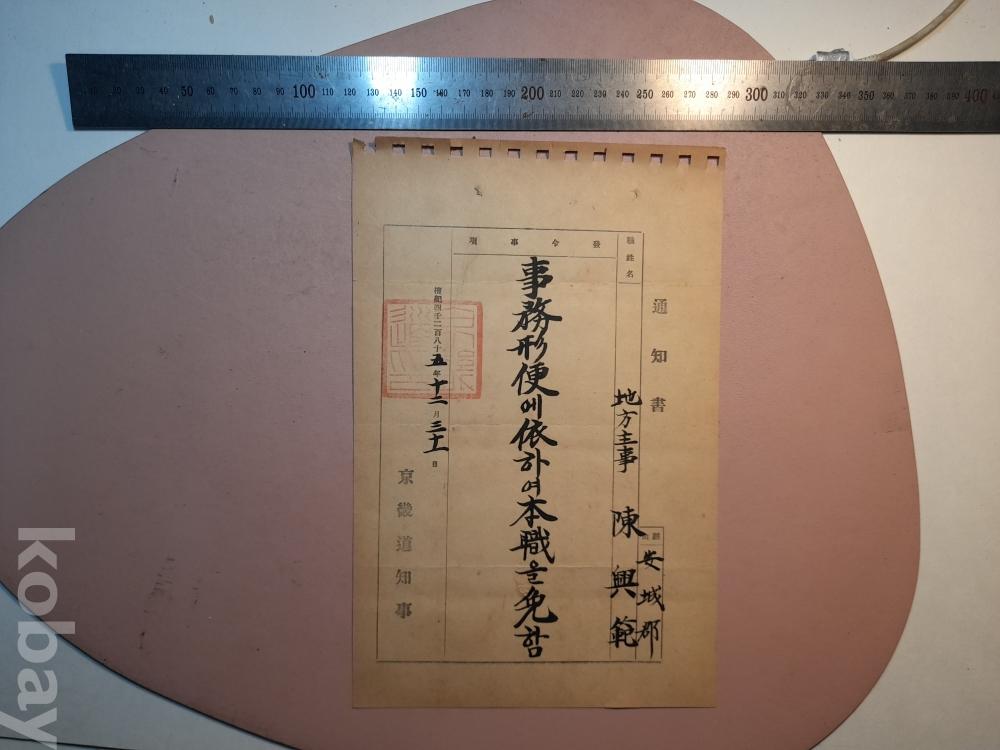 通知書
職姓名
安城郡
地方主事 陳興範
發令事項
事務形便에依하여本職을免함
檀紀四千二百八十五年十二月三十一日
京畿道知事
10 20 30 40 50 60 70 80 90 100 110 120 130 140 150 160 170 180 190 200 210 220 230 240 250 260 270 280 290 300 310 320 330 340 350 360 370 380 390 400
kobay